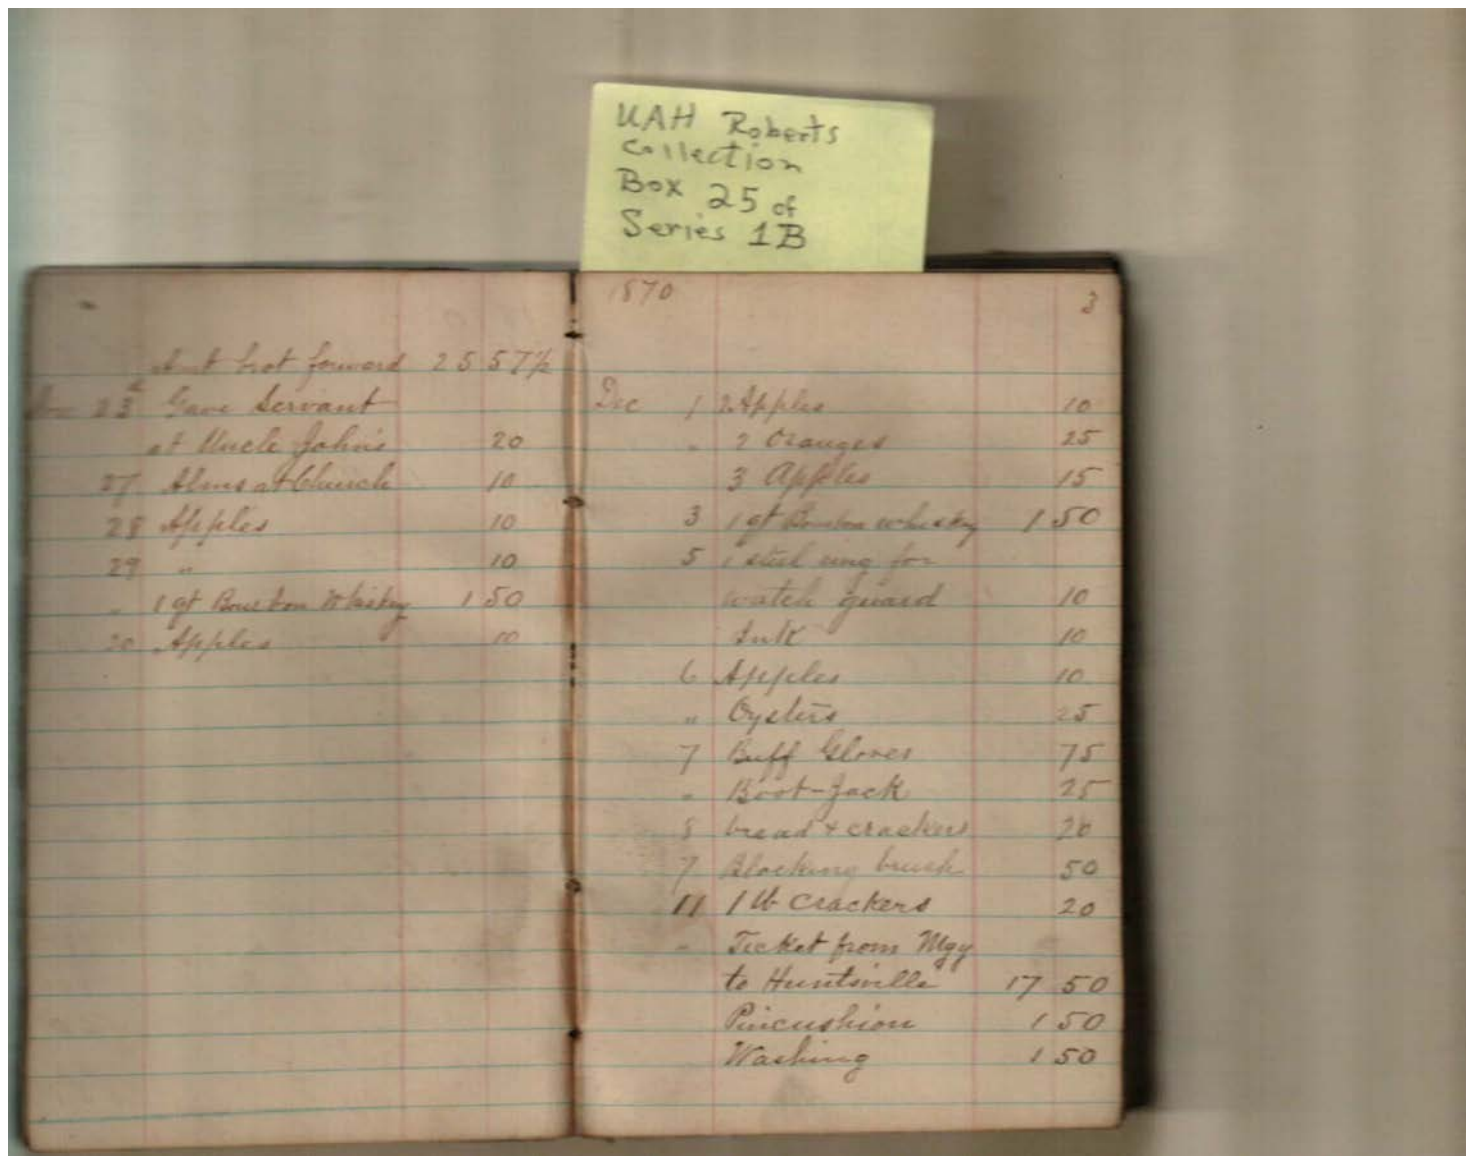 UAH Roberts
Collection
Box 25 of
Series 1B
Amt brot forward 25 57½
23d Gave Servant
at Uncle John's 20
27 Alms at Church 10
28 Apples 10
29 " 10
" 1 qt Bourbon Whiskey 1 50
30 Apples 10
1870 3
Dec 1 2 Apples 10
" 2 Oranges 25
3 Apples 15
3 1 qt Bourbon whiskey 1 50
5 1 steel ring for
watch guard 10
Ink 10
6 Apples 10
" Oysters 25
7 Buff Gloves 75
" Boot-Jack 25
8 bread + crackers 20
7 Blacking brush 50
11 1 lb crackers 20
" Ticket from Mgy
to Huntsville 17 50
Pincushion 1 50
Washing 1 50